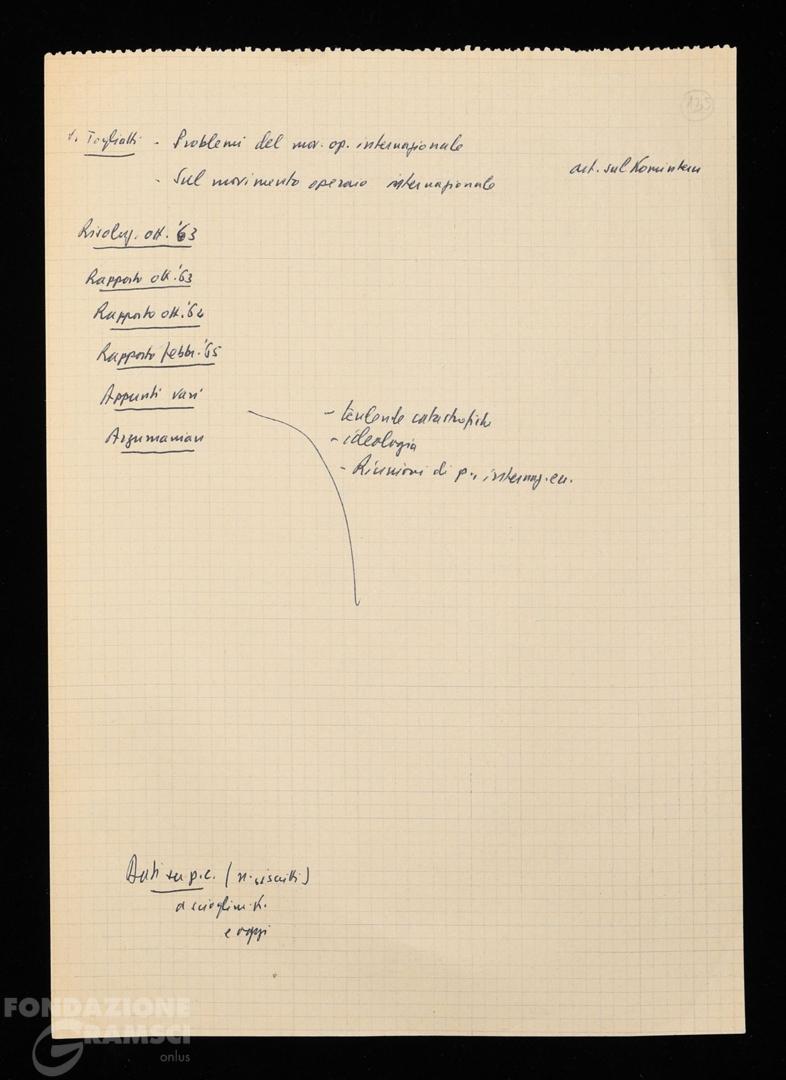 135
v. Togliatti - Problemi del mov. op. internazionale
- Sul movimento operaio internazionale
art. sul Komintern
Risoluz. ott. '63
Rapporto ott. '63
Rapporto ott. '64
Rapporto febbr. '65
Appunti vari
Arzumanian
- tendenze catastrofiche
- ideologia
- Riunioni di p. internaz. ecc.
Dati su p.c. (n. iscritti)
a scioglim. K.
e oggi
FONDAZIONE
GRAMSCI
onlus